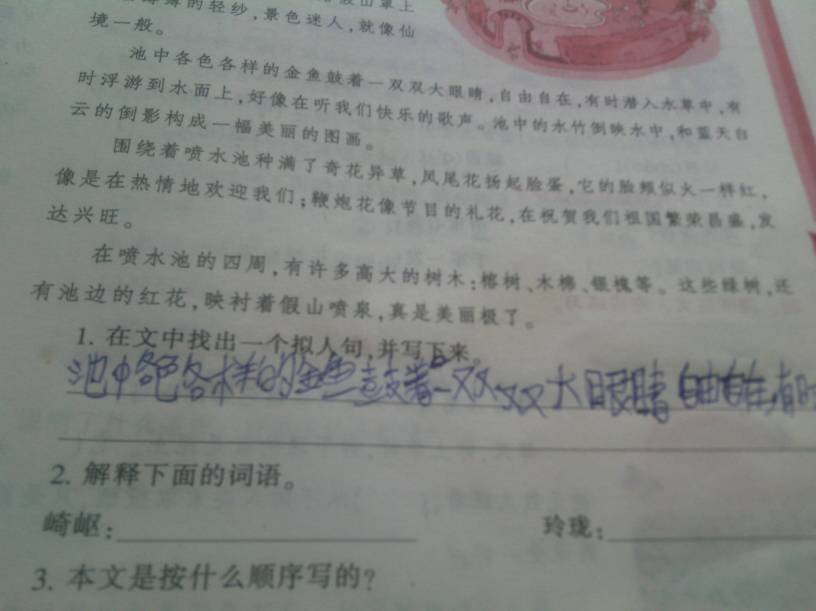 的轻纱,景色迷人,就像仙
境一般。
池中各色各样的金鱼鼓着一双双大眼睛,自由自在,有时潜入水草中,有
时浮游到水面上,好像在听我们快乐的歌声。池中的水竹倒映水中,和蓝天白
云的倒影构成一幅美丽的图画。
围绕着喷水池种满了奇花异草,凤尾花扬起脸蛋,它的脸颊似火一样红,
像是在热情地欢迎我们;鞭炮花像节日的礼花,在祝贺我们祖国繁荣昌盛,发
达兴旺。
在喷水池的四周,有许多高大的树木:榕树、木棉、银槐等。这些绿树,还
有池边的红花,映衬着假山喷泉,真是美丽极了。
1. 在文中找出一个拟人句,并写下来。
池中各色各样的金鱼鼓着一双双大眼睛自由自在,有时
2. 解释下面的词语。
崎岖: 玲珑:
3. 本文是按什么顺序写的?